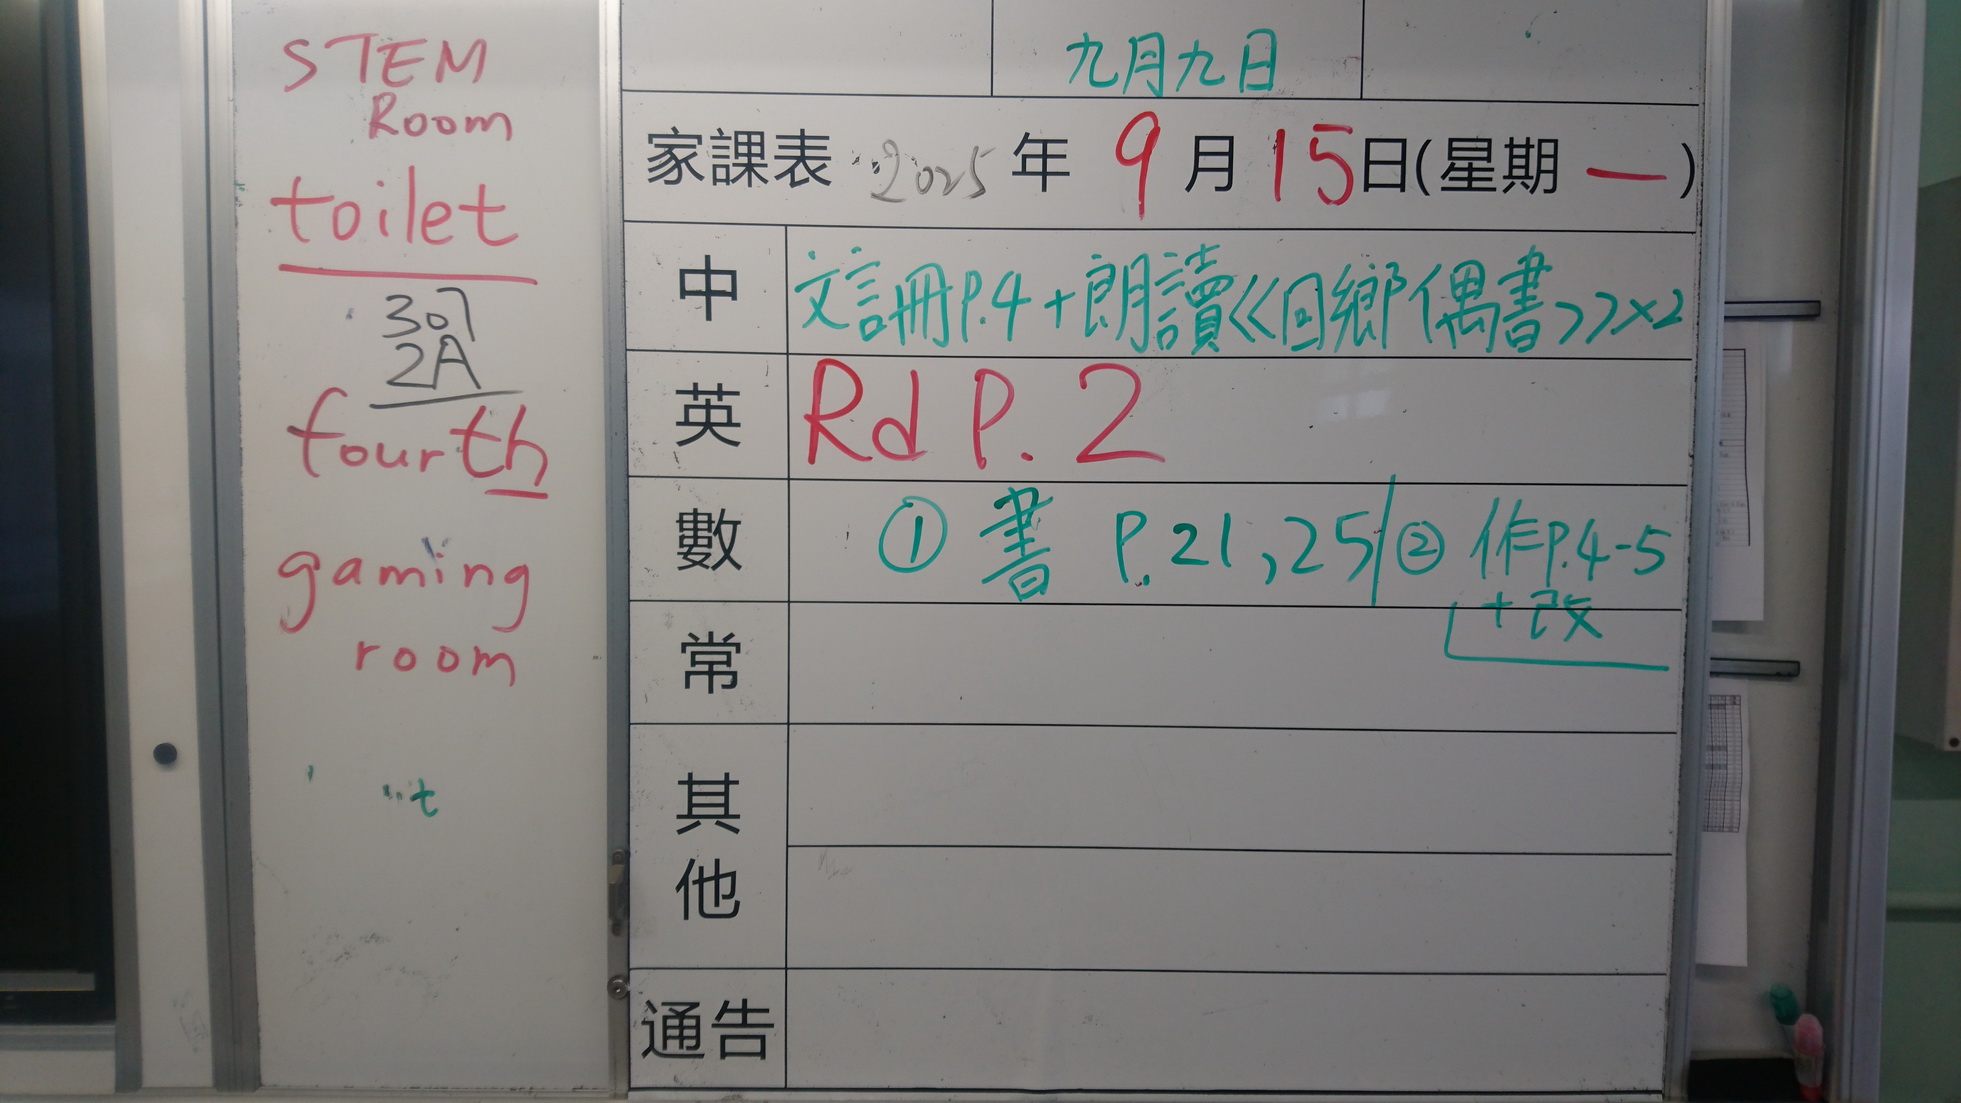 STEM
Room
toilet
307
2A
fourth
gaming
room
t
九月九日
家課表 2025 年 9 月 15 日(星期 一)
中 文言冊P.4+朗讀《回鄉偶書》×2
英 Rd P. 2
數 ① 書 P.21,25/② 作P.4-5
+改
常
其他
通告